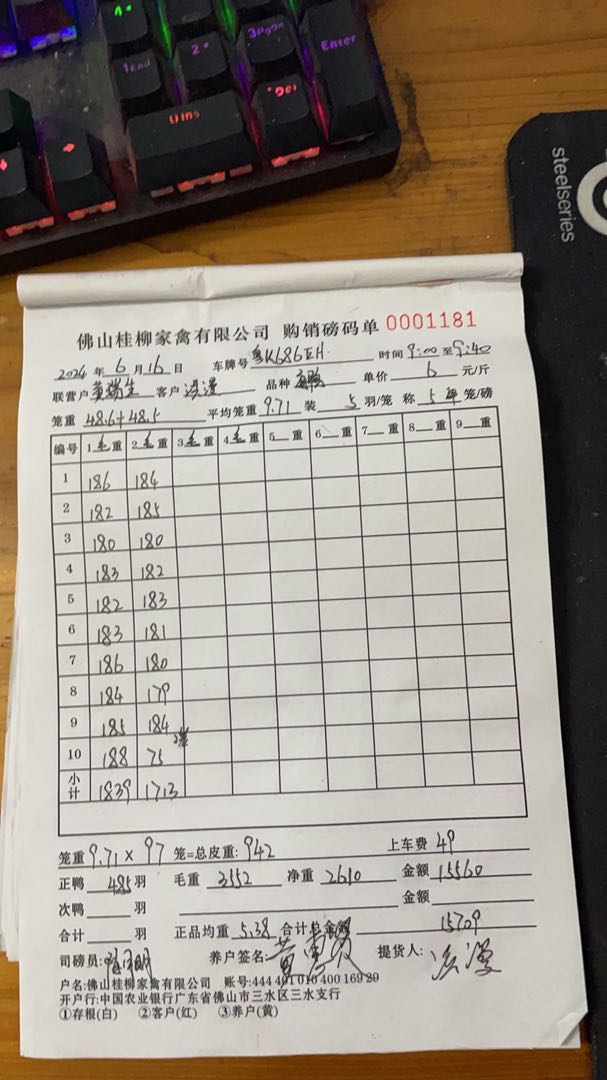 A•
3Pgdn
Enter
1End
2•
0Ins
•Del
steelseries
佛山桂柳家禽有限公司 购销磅码单 0001181
2024 年 6 月 16 日 车牌号 粤K686EH 时间 9:00 至 9:40
联营户 黄瑞生 客户 漫漫 品种 单价 6 元/斤
笼重 48.6+48.5 平均笼重 9.71 装 5 羽/笼 称 5 笼/磅
编号 1毛重 2毛重 3毛重 4毛重 5__重 6__重 7__重 8__重 9__重
1 186 184
2 182 185
3 180 180
4 183 182
5 182 183
6 183 181
7 186 180
8 184 179
9 185 184
10 188 75 2笼
小计 1839 1713
笼重 9.71 × 97 笼=总皮重: 942 上车费 49
正鸭 485 羽 毛重 3552 净重 2610 金额 15560
次鸭 羽 金额
合计 羽 正品均重 5.38 合计总金额 15709
司磅员: 养户签名: 提货人:
户名:佛山桂柳家禽有限公司 账号:444 401 010 400 169 29
开户行:中国农业银行广东省佛山市三水区三水支行
①存根(白) ②客户(红) ③养户(黄)